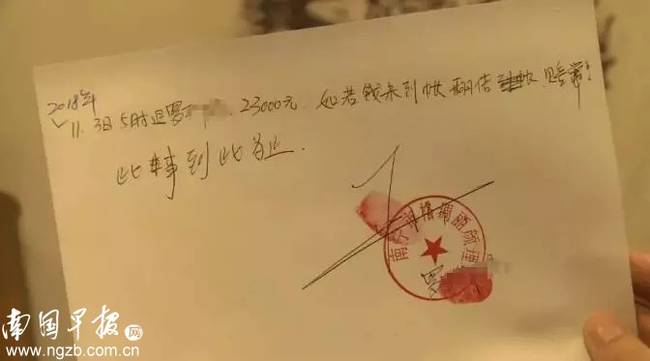 2018年
11.3日5时退罗 23000元. 如若钱未到帐翻倍 赔偿!
此事到此为止.
南宁
罗
南国早报网
www.ngzb.com.cn